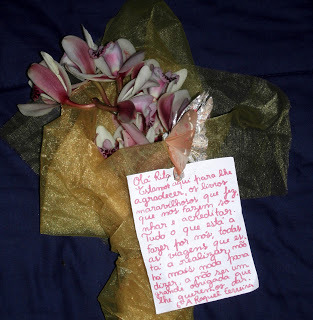 Olá Rita
Estamos aqui para lhe
agradecer, os livros
maravilhosos que fez,
que nos fazem so-
nhar e acreditar.
Tudo o que está a
fazer por nós, todas
as viagens que es-
tá a realizar, não
há mais nada para
dizer, a não ser um
grande obrigada que
lhe queremos dar.
A Raquel Ferreira